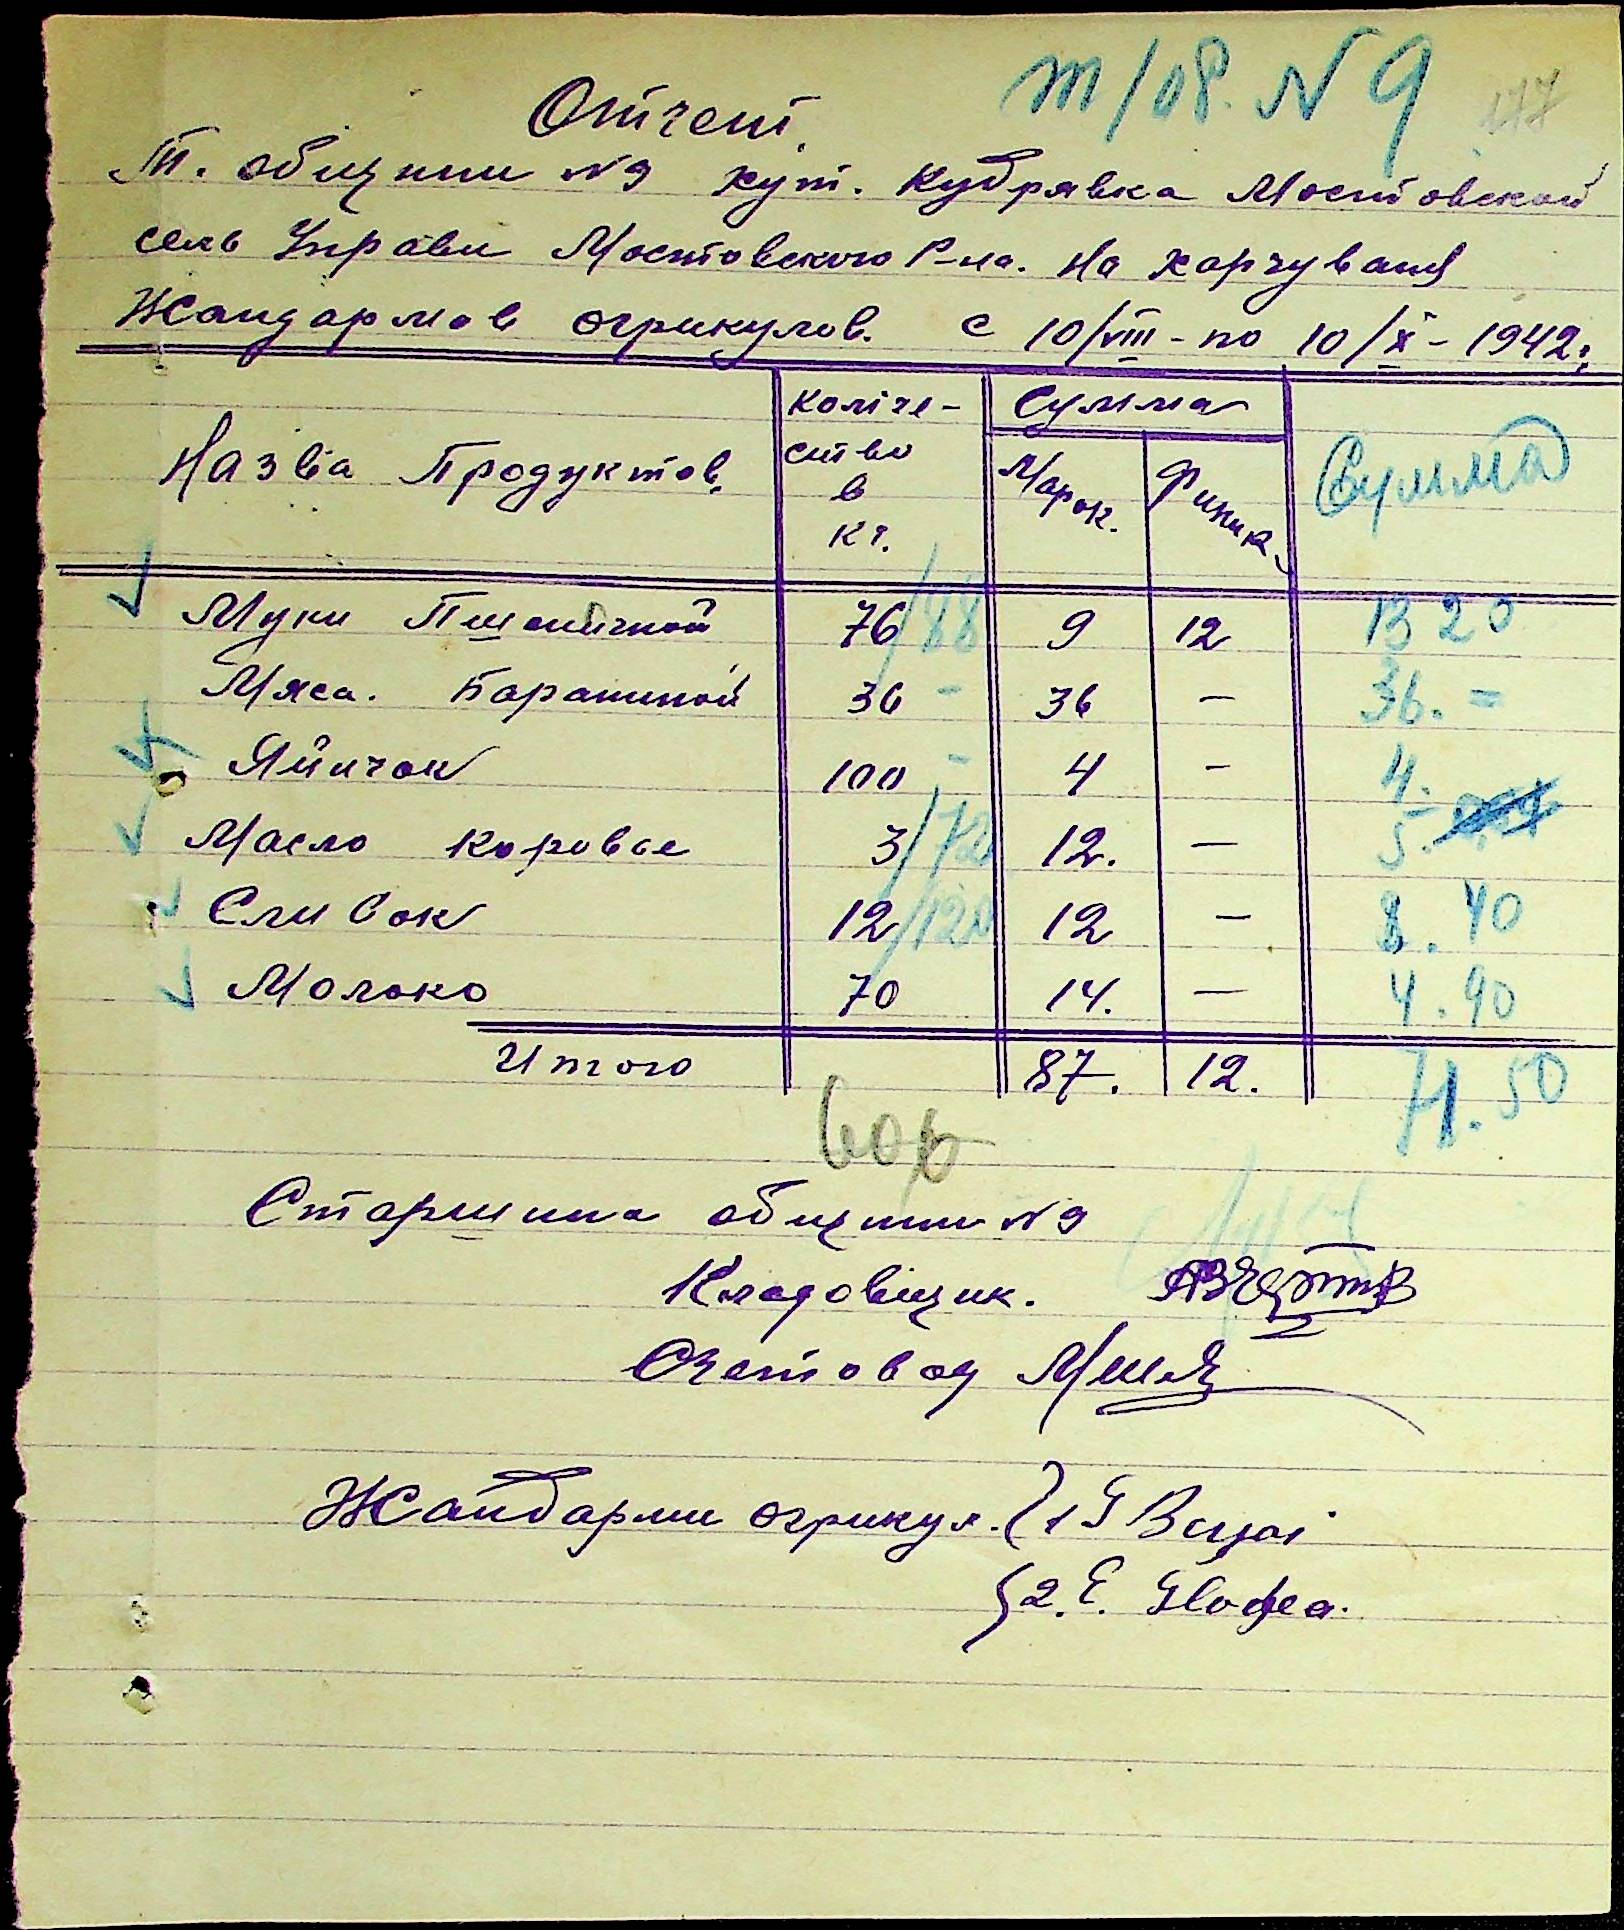 т/об. N 9
117
Отчет
Т. общини N9 хут. Кудрявка Мостовской
сель Управи Мостовского Р-на. На харчуваня
Жандармов агрикулов. с 10/VIII - по 10/X - 1942г
Назвia Продуктов. Колiче- Сумма Сумма
ство Марок. Финик.
в
кг.
Муки Пшеничной 76/88 9 12 13 20
Мяса. Бараниной 36 - 36 — 36. =
Яйичок 100 - 4 — 4.
Масло коровье 3/72 12. — 5.
Сливок 12/120 12 — 8. 40
Молоко 70 14. — 4. 90
Итого 87. 12. 71. 50
Старшина общини N9
Кладовщик.
Счетовод
Жандарми агрикул. 1
2. E.